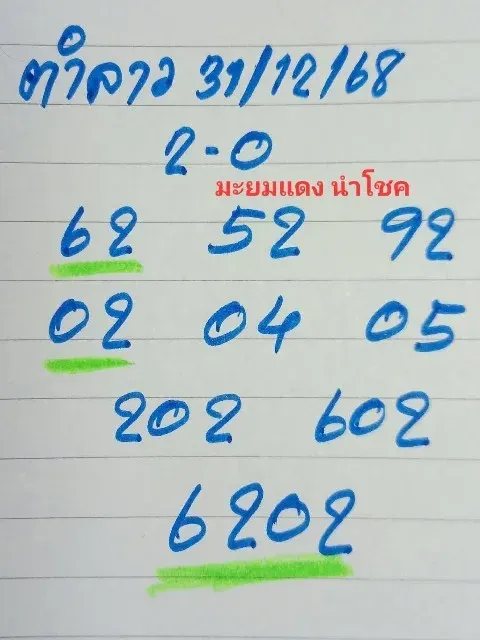 ตำลาว 31/12/68
2-0
มะยมแดง นำโชค
62 52 92
02 04 05
202 602
6202